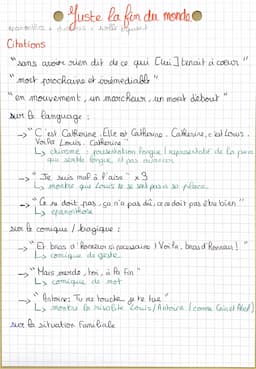 Juste la fin du monde
Citations
"sans avoir rien dit de ce qui [lui] tenait à cœur"
"mort prochaine et irrémédiable"
"en mouvement, un marcheur, un mort debout"
sur le language :
→ "C'est Catherine. Elle est Catherine. Catherine, c'est Louis.
Voilà Louis. Catherine."
↳ chiasme : présentation longue / représentatif de la pièce
qui semble longue, et pas avancer
→ "Je suis mal à l'aise" x3
↳ montre que Louis ne se sent pas à sa place
→ "Ce ne doit pas, ça n'a pas dû, ce ne doit pas être bien"
↳ épanorthose
sur le comique / tragique :
→ "Et bras d'honneur si nécessaire ! Voilà, bras d'honneur !"
↳ comique de geste
→ "Mais merde, toi, à la fin"
↳ comique de mot
→ "Antoine : Tu me touches, je te tue"
↳ montre la rivalité Louis/Antoine (comme Caïn et Abel)
sur la situation familiale